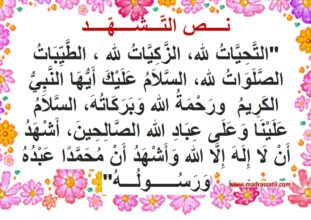 نـــص التَّـشـــهّـــد
"التَّحِيَّاتُ لله، الزَّكِيَّاتُ لله ، الطَّيِّبَاتُ
الصَّلَوَاتُ لله، السَّلاَمُ عَلَيْكَ أَيُّهَا النَّبِيُّ
الكَرِيمُ وَرَحْمَةُ الله وَبَرَكَاتُهُ، السَّلاَمُ
عَلَيْنَا وَعَلَى عِبَادِ الله الصَّالِحِينَ، أَشْهَدُ
أَنْ لاَ إِلَهَ إِلَّا الله وَأَشْهَدُ أَنْ مُحَمَّدًا عَبْدُهُ
وَرَســـــُولُـــهُ"
www.madrassatii.com